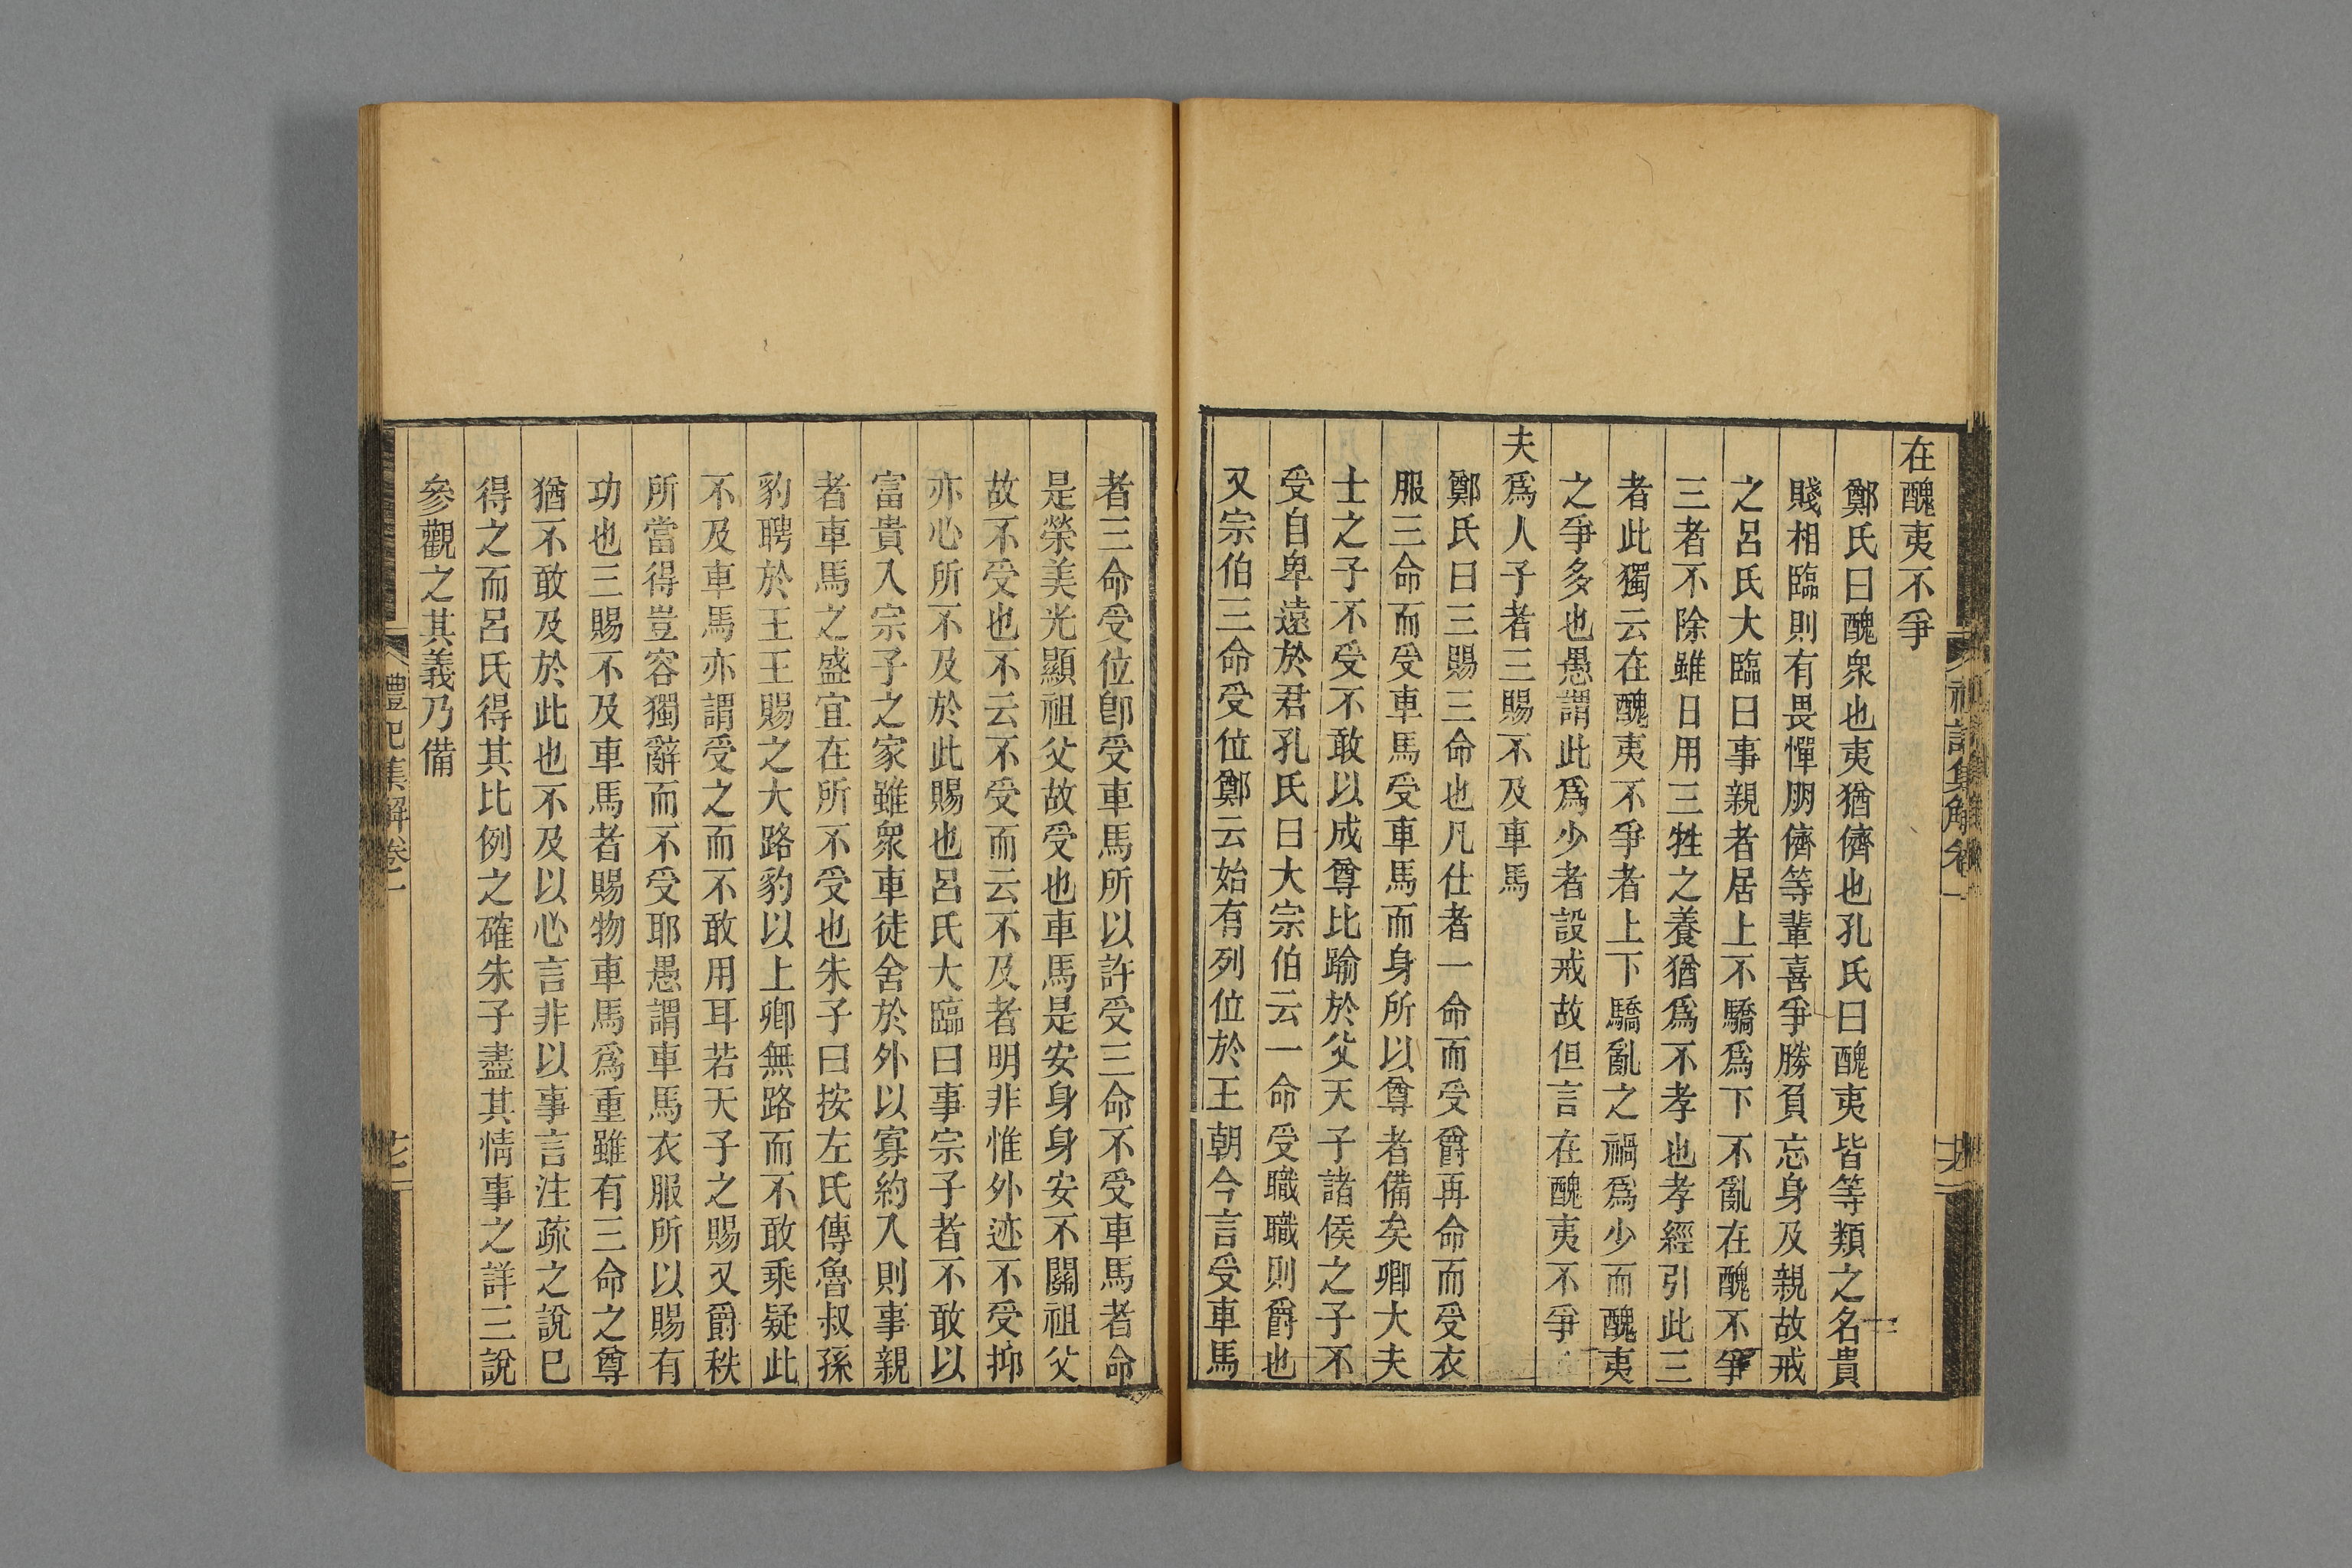 禮記集解卷一
在醜夷不爭
鄭氏曰醜衆也夷猶儕也孔氏曰醜夷皆等類之名貴
賤相臨則有畏憚朋儕等輩喜爭勝負忘身及親故戒
之呂氏大臨曰事親者居上不驕爲下不亂在醜不爭
三者不除雖日用三牲之養猶爲不孝也孝經引此三
者此獨云在醜夷不爭者上下驕亂之禍爲少而醜夷
之爭多也愚謂此爲少者設戒故但言在醜夷不爭
夫爲人子者三賜不及車馬
鄭氏曰三賜三命也凡仕者一命而受爵再命而受衣
服三命而受車馬受車馬而身所以尊者備矣卿大夫
士之子不受不敢以成尊比踰於父天子諸侯之子不
受自卑遠於君孔氏曰大宗伯云一命受職職則爵也
又宗伯三命受位鄭云始有列位於王朝今言受車馬
者三命受位卽受車馬所以許受三命不受車馬者命
是榮美光顯祖父故受也車馬是安身身安不關祖父
故不受也不云不受而云不及者明非惟外迹不受抑
亦心所不及於此賜也呂氏大臨曰事宗子者不敢以
富貴入宗子之家雖衆車徒舍於外以寡約入則事親
者車馬之盛宜在所不受也朱子曰按左氏傳魯叔孫
豹聘於王王賜之大路豹以上卿無路而不敢乘疑此
不及車馬亦謂受之而不敢用耳若天子之賜又爵秩
所當得豈容獨辭而不受耶愚謂車馬衣服所以賜有
功也三賜不及車馬者賜物車馬爲重雖有三命之尊
猶不敢及於此也不及以心言非以事言注疏之說已
得之而呂氏得其比例之確朱子盡其情事之詳三說
參觀之其義乃備
禮記集解卷一